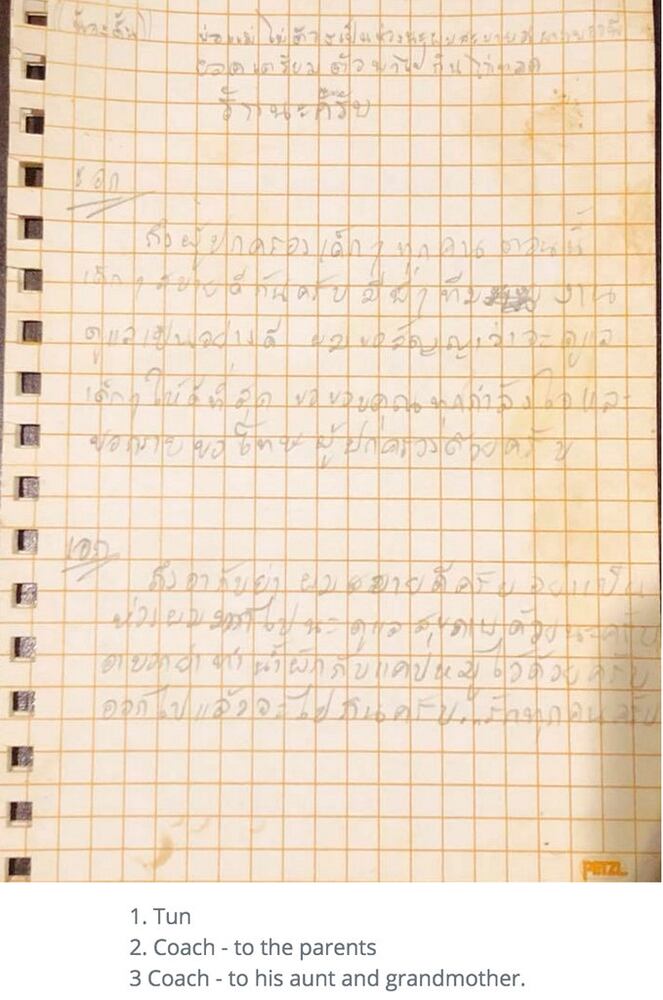 (น้องตั้น) พ่อแม่ ไม่ต้องเป็นห่วงนะผมสบายดี
ยอดเตรียมตัวพาไปกินไก่ทอด
รักนะครับ
เอก
ถึงผู้ปกครองเด็กๆทุกคน ตอนนี้
เด็กๆสบายดีกันครับ มีพี่ๆทีม งาน
ดูแลเป็นอย่างดี ผมขอสัญญาว่าจะดูแล
เด็กๆให้ดีที่สุด ขอขอบคุณทุกกำลังใจและ
ขอกราบขอโทษผู้ปกครองด้วยครับ
เอก
ถึงอากับย่า ผมสบายดีครับ อย่าเป็น
ห่วงผม ไปนะ ดูแลสุขภาพด้วยนะครับ
อาบอกย่าทำน้ำผักกับแคปหมูไว้ด้วยครับ
ออกไปแล้วจะไปกินครับ...รักทุกคนครับ
PETZL
1. Tun
2. Coach - to the parents
3 Coach - to his aunt and grandmother.